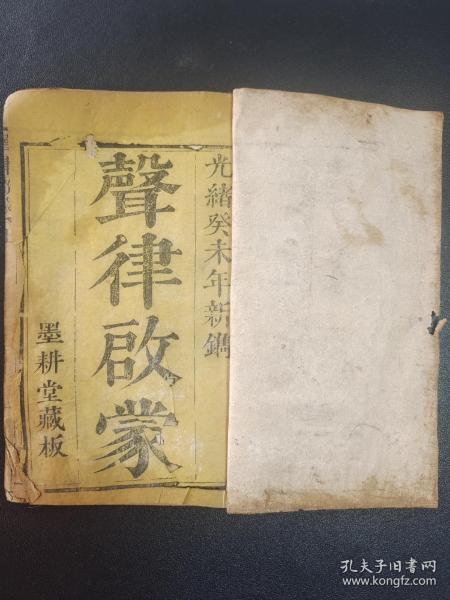 光緒癸未年新鐫
聲律啟蒙
墨耕堂藏板
孔夫子旧书网
www.kongfz.com